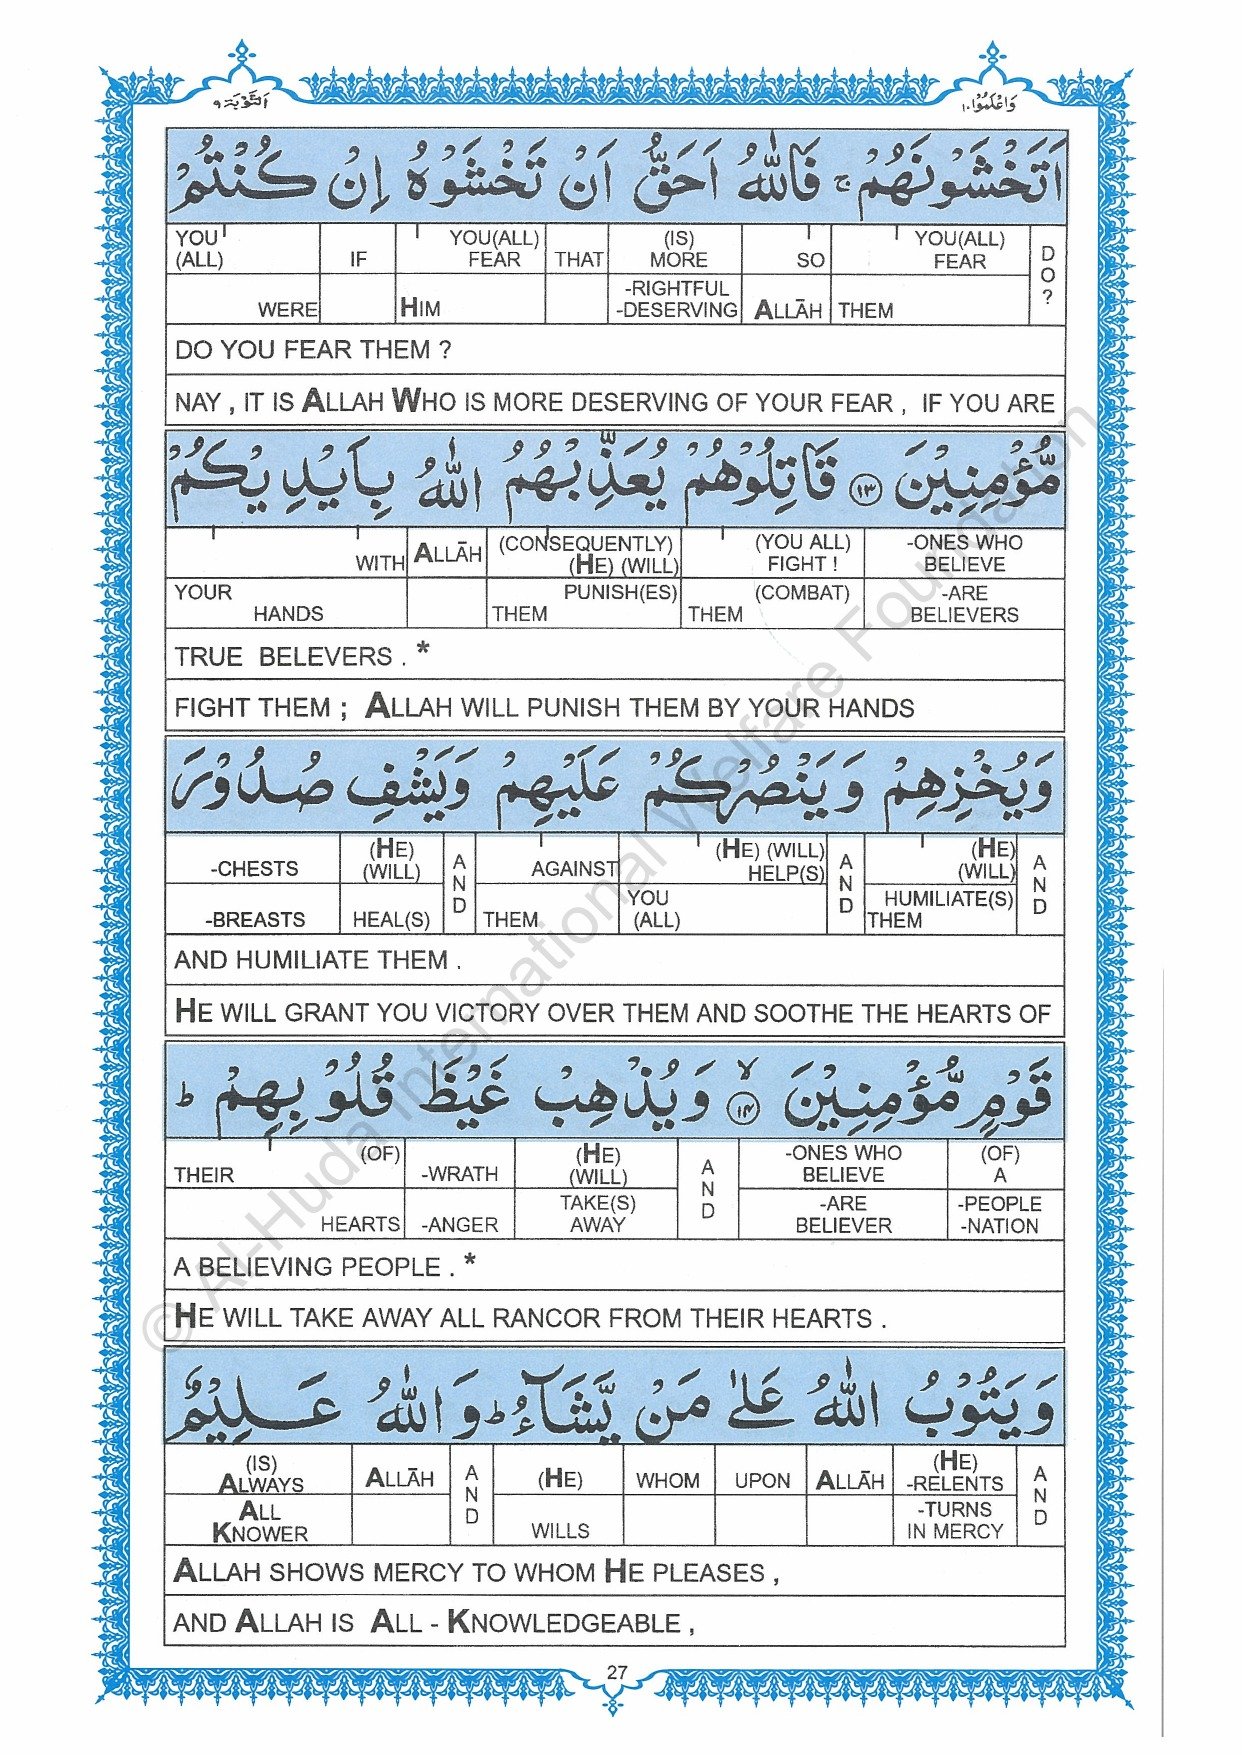 التَّوْبَة ٩
وَاعْلَمُوْا ١٠
اَتَخْشَوْنَهُمْ ۚ فَاللّٰهُ اَحَقُّ اَنْ تَخْشَوْهُ اِنْ كُنْتُمْ
YOU (ALL) WERE | IF | YOU(ALL) FEAR HIM | THAT | (IS) MORE -RIGHTFUL -DESERVING | SO ALLĀH | YOU(ALL) FEAR THEM | DO?
DO YOU FEAR THEM ?
NAY , IT IS ALLAH WHO IS MORE DESERVING OF YOUR FEAR , IF YOU ARE
مُّؤْمِنِيْنَ ﴿١٣﴾ قَاتِلُوْهُمْ يُعَذِّبْهُمُ اللّٰهُ بِاَيْدِيْكُمْ
WITH YOUR HANDS | ALLĀH | (CONSEQUENTLY) (HE) (WILL) PUNISH(ES) THEM | (YOU ALL) FIGHT ! (COMBAT) THEM | -ONES WHO BELIEVE -ARE BELIEVERS
TRUE BELEVERS . *
FIGHT THEM ; ALLAH WILL PUNISH THEM BY YOUR HANDS
وَيُخْزِهِمْ وَيَنْصُرْكُمْ عَلَيْهِمْ وَيَشْفِ صُدُوْرَ
-CHESTS -BREASTS | (HE) (WILL) HEAL(S) | AND | AGAINST THEM | (HE) (WILL) HELP(S) YOU (ALL) | AND | (HE) (WILL) HUMILIATE(S) THEM | AND
AND HUMILIATE THEM .
HE WILL GRANT YOU VICTORY OVER THEM AND SOOTHE THE HEARTS OF
قَوْمٍ مُّؤْمِنِيْنَ ﴿١٤﴾ ۙ وَيُذْهِبْ غَيْظَ قُلُوْبِهِمْ ؕ
(OF) THEIR HEARTS | -WRATH -ANGER | (HE) (WILL) TAKE(S) AWAY | AND | -ONES WHO BELIEVE -ARE BELIEVER | (OF) A -PEOPLE -NATION
A BELIEVING PEOPLE . *
HE WILL TAKE AWAY ALL RANCOR FROM THEIR HEARTS .
وَيَتُوْبُ اللّٰهُ عَلٰى مَنْ يَّشَآءُ ؕ وَاللّٰهُ عَلِيْمٌ
(IS) ALWAYS ALL KNOWER | ALLĀH | AND | (HE) WILLS | WHOM | UPON | ALLĀH | (HE) -RELENTS -TURNS IN MERCY | AND
ALLAH SHOWS MERCY TO WHOM HE PLEASES ,
AND ALLAH IS ALL - KNOWLEDGEABLE ,
27
© Al-Huda International Welfare Foundation